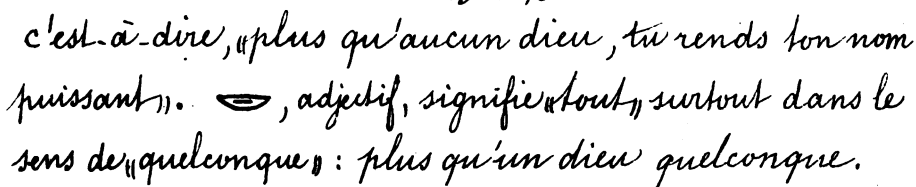 c'est-à-dire, „plus qu'aucun dieu, tu rends ton nom
puissant„. 𓎟, adjectif, signifie „tout„ surtout dans le
sens de „quelconque„ : plus qu'un dieu quelconque.